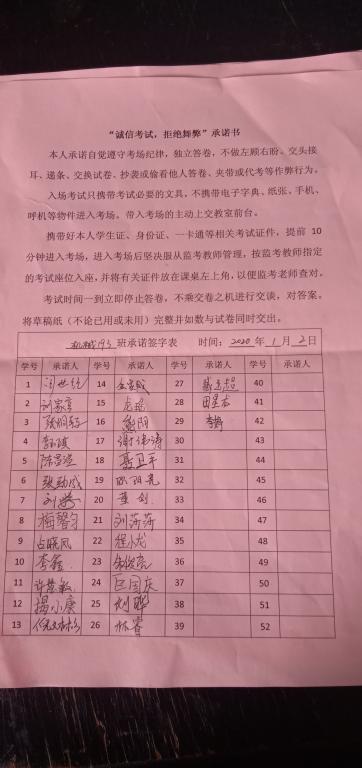 “诚信考试，拒绝舞弊”承诺书
本人承诺自觉遵守考场纪律，独立答卷，不做左顾右盼、交头接
耳、递条、交换试卷、抄袭或偷看他人答卷、夹带或代考等作弊行为。
入场考试只携带考试必要的文具，不携带电子字典、纸张、手机、
呼机等物件进入考场。带入考场的主动上交教室前台。
携带好本人学生证、身份证、一卡通等相关考试证件，提前 10
分钟进入考场，进入考场后坚决服从监考教师管理，按监考教师指定
的考试座位入座，并将有关证件放在课桌左上角，以便监考老师查对。
考试时间一到立即停止答卷，不乘交卷之机进行交谈，对答案。
将草稿纸（不论已用或未用）完整并如数与试卷同时交出。
机械193 班承诺签字表 时间：2020 年 1 月 2 日
学号 承诺人 学号 承诺人 学号 承诺人 学号 承诺人
1 14 27 40
2 15 28 41
3 16 29 42
4 17 谢伟涛 30 43
5 18 聂卫平 31 44
6 19 欧阳亮 32 45
7 20 董剑 33 46
8 梅馨 21 刘莎莎 34 47
9 占晓风 22 程小龙 35 48
10 李鑫 23 36 49
11 24 区国庆 37 50
12 揭小康 25 刘聪 38 51
13 26 林睿 39 52